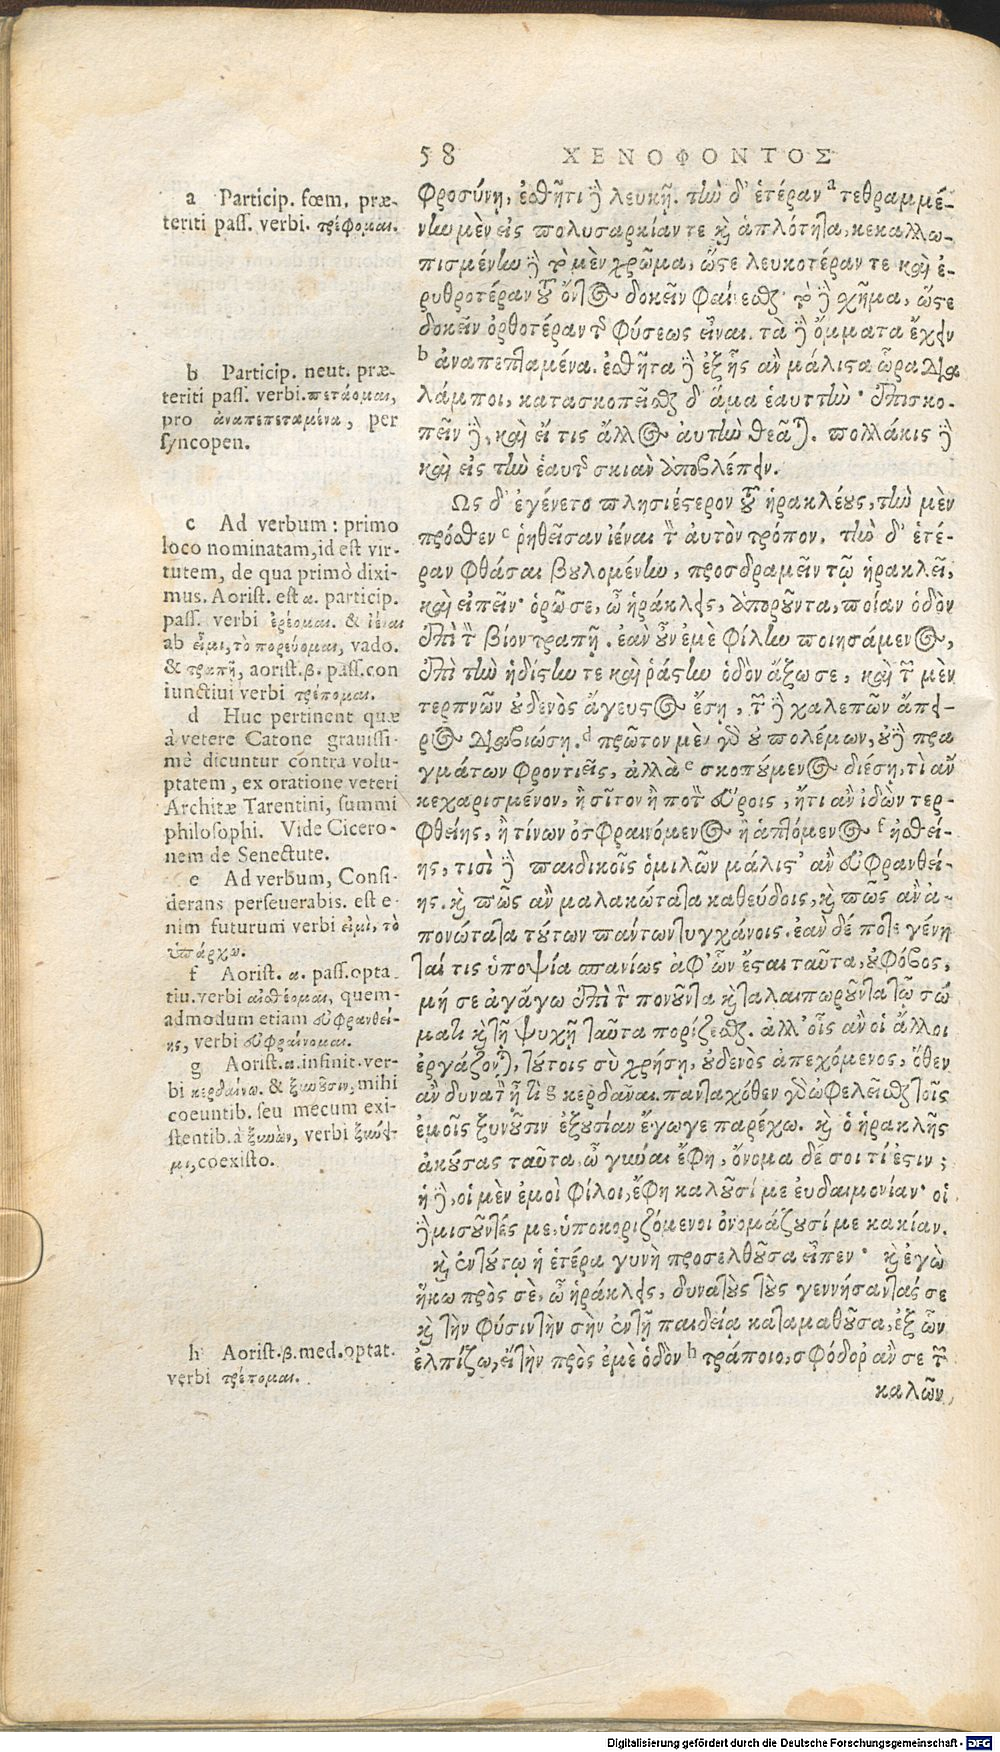 58 ΧΕΝΟΦΟΝΤΟΣ
a Particip. fœm. præ-
teriti pass. verbi. τρέφομαι.
b Particip. neut. præ-
teriti pass. verbi. πετάομαι,
pro ἀναπεπεταμένα, per
syncopen.
c Ad verbum: primo
loco nominatam, id est vir-
tutem, de qua primò dixi-
mus. Aorist. est α. particip.
pass. verbi ἐρέομαι. & ἰέναι
ab εἶμι, τὸ πορεύομαι, vado.
& τραπῇ, aorist. β. pass. con
iunctiui verbi τρέπομαι.
d Huc pertinent quæ
à vetere Catone grauissi-
mè dicuntur contra volu-
ptatem, ex oratione veteri
Architæ Tarentini, summi
philosophi. Vide Cicero-
nem de Senectute.
e Ad verbum, Consi-
derans perseuerabis. est e-
nim futurum verbi εἰμὶ, τὸ
ὑπάρχω.
f Aorist. α. pass. opta
tiu. verbi αἰσθέομαι, quem-
admodum etiam εὐφρανθεί-
ης, verbi εὐφραίνομαι.
g Aorist. α. infinit. ver-
bi κερδαίνω. & ξυνοῦσιν, mihi
coeuntib. seu mecum exi-
stentib. à ξυνὼν, verbi ξύνει-
μι, coexisto.
h Aorist. β. med. optat.
verbi τρέπομαι.
φροσύνῃ, ἐσθῆτι δὲ λευκῇ. τὴν δ' ἑτέραν a τεθραμμέ-
νην μὲν εἰς πολυσαρκίαν τε καὶ ἁπλότητα, κεκαλλω-
πισμένην δὲ τὸ μὲν χρῶμα, ὥστε λευκοτέραν τε καὶ ἐ-
ρυθροτέραν τοῦ ὄντος δοκεῖν φαίνεσθαι· τὸ δὲ σχῆμα, ὥστε
δοκεῖν ὀρθοτέραν τῆς φύσεως εἶναι. τὰ δὲ ὄμματα ἔχειν
b ἀναπεπταμένα. ἐσθῆτα δὲ ἐξ ἧς ἂν μάλιστα ὥρα δια
λάμποι, κατασκοπεῖσθαι δ' ἅμα ἑαυτὴν· ἐπισκο-
πεῖν δὲ, καὶ εἴ τις ἄλλος αὐτὴν θεᾶται. πολλάκις δὲ
καὶ εἰς τὴν ἑαυτῆς σκιὰν ἀποβλέπειν.
Ως δ' ἐγένετο πλησιέστερον τοῦ ἡρακλέους, τὴν μὲν
πρόσθεν c ῥηθεῖσαν ἰέναι τὸν αὐτὸν τρόπον. τὴν δ' ἑτέ-
ραν φθάσαι βουλομένην, προσδραμεῖν τῷ ἡρακλεῖ,
καὶ εἰπεῖν· ὁρῶ σε, ὦ ἡράκλεις, ἀποροῦντα, ποίαν ὁδὸν
ἐπὶ τὸν βίον τραπῇ. ἐὰν οὖν ἐμὲ φίλην ποιησάμενος,
ἐπὶ τὴν ἡδίστην τε καὶ ῥᾴστην ὁδὸν ἄξω σε, καὶ τῶν μὲν
τερπνῶν οὐδενὸς ἄγευστος ἔσῃ, τῶν δὲ χαλεπῶν ἄπει-
ρος διαβιώσῃ. d πρῶτον μὲν γὰρ οὐ πολέμων, οὐδὲ πρα
γμάτων φροντιεῖς, ἀλλὰ e σκοπούμενος διέσῃ, τὶ ἂν
κεχαρισμένον, ἢ σῖτον ἢ ποτὸν εὕροις, ἤ τι ἂν ἰδὼν τερ-
φθείης, ἢ τίνων ὀσφραινόμενος ἢ ἁπτόμενος f ἡσθεί-
ης, τισὶ δὲ παιδικοῖς ὁμιλῶν μάλιστ' ἂν εὐφρανθεί-
ης. καὶ πῶς ἂν μαλακώτατα καθεύδοις, καὶ πῶς ἂν ἀ-
πονώτατα τούτων πάντων τυγχάνοις. ἐὰν δέ ποτε γένη
ταί τις ὑποψία σπανίως ἀφ' ὧν ἔσται ταῦτα, οὐ φόβος,
μή σε ἀγάγω ἐπὶ τὸ πονοῦντα καὶ ταλαιπωροῦντα τῷ σώ
ματι καὶ τῇ ψυχῇ ταῦτα πορίζεσθαι. ἀλλ' οἷς ἂν οἱ ἄλλοι
ἐργάζονται, τούτοις σὺ χρήσῃ, οὐδενὸς ἀπεχόμενος, ὅθεν
ἂν δυνατὸν ᾖ τὶ g κερδᾶναι. πανταχόθεν γὰρ ὠφελεῖσθαι τοῖς
ἐμοῖς ξυνοῦσιν ἐξουσίαν ἔγωγε παρέχω. καὶ ὁ ἡρακλῆς
ἀκούσας ταῦτα, ὦ γύναι ἔφη, ὄνομα δέ σοι τί ἐστιν;
ἡ δὲ, οἱ μὲν ἐμοὶ φίλοι, ἔφη καλοῦσί με ευδαιμονίαν· οἱ
δὲ μισοῦντές με, ὑποκοριζόμενοι ὀνομάζουσί με κακίαν.
καὶ ἐν τούτῳ ἡ ἑτέρα γυνὴ προσελθοῦσα εἶπεν· καὶ ἐγὼ
ἥκω πρὸς σὲ, ὦ ἡράκλεις, δυνατοὺς τοὺς γεννήσαντάς σε
καὶ τὴν φύσιν τὴν σὴν ἐν τῇ παιδείᾳ καταμαθοῦσα, ἐξ ὧν
ἐλπίζω, εἰ τὴν πρὸς ἐμὲ ὁδὸν h τράποιο, σφόδρ' ἂν σε τῶν
καλῶν
Digitalisierung gefördert durch die Deutsche Forschungsgemeinschaft - DFG